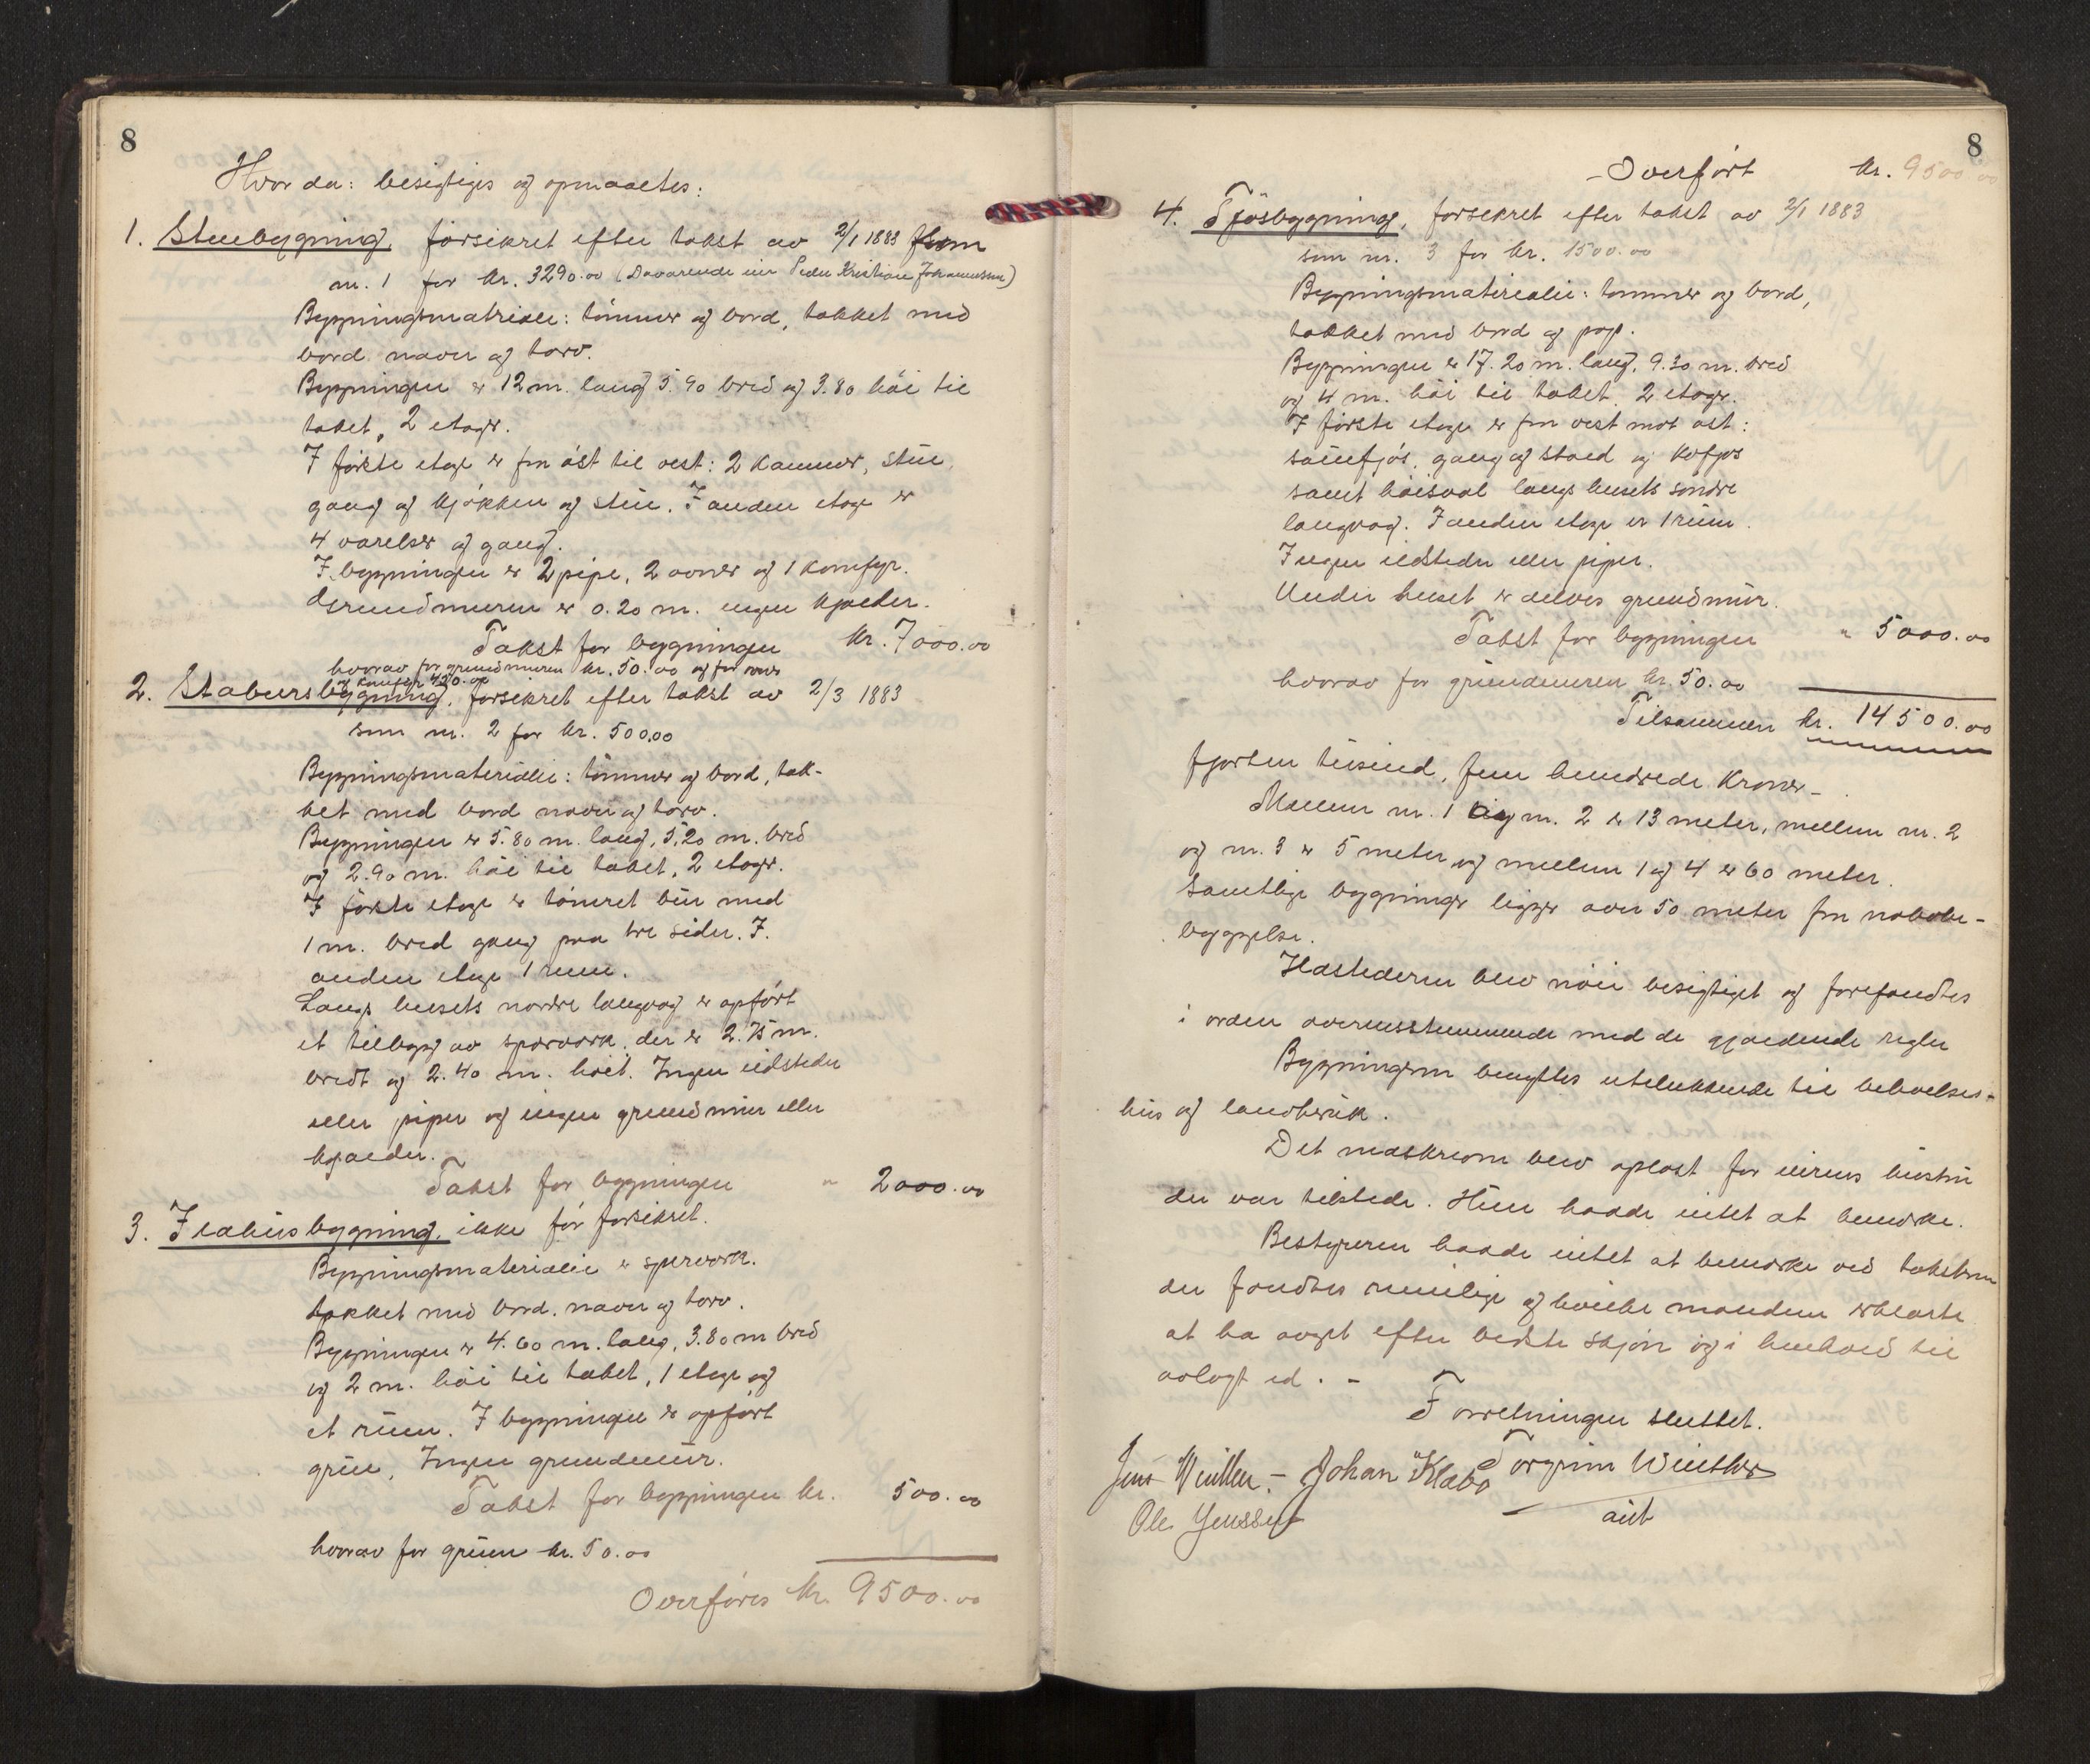 8
Hvor da: besigtiges og opmaaltes:
1. Stuebygning, forsikret efter takst av 2/1 1883 som
nr. 1 for kr. 3290.00 (Davarende eier Peder Kristian Johannessen)
Bygningsmatriale: tømmer og bord, tækket med
bord never og torv.
Bygningen er 12 m. lang 5.90 bred og 3.80 høi til
taket, 2 etager.
I første etage er fra øst til vest: 2 kammer, stue,
gang og kjøkken og stue. I anden etage er
4 værelser og gang.
I bygningen er 2 pipe, 2 ovner og 1 komfyr.
Grundmuren er 0.20 m. ingen kjælder.
Takst for bygningen kr. 7000.00
hvorav for grundmuren kr. 50.00 og for ovner
og komfyr 450.00
2. Stabursbygning, forsikret efter takst av 2/3 1883
som nr. 2 for kr. 500.00
Bygningsmaterialie: tømmer og bord, tæk-
ket med bord never og torv.
Bygningen er 5.80 m. lang, 5,20 m. bred
og 2.90 m. høi til taket, 2 etager.
I første etage er tømret bur med
1 m. bred gang paa tre sider. I
anden etage 1 rum.
Langs husets nordre langvæg er opført
et tilbygg av sperverk, der er 2.75 m.
bredt og 2.40 m. høit. Ingen ildsteder
eller piper og ingen grundmur eller
kjælder.
Takst for bygningen " 2000.00
3. Ildhusbygning, ikke før forsikret.
Bygningsmaterialie er sperverk.
tækket med bord, never og torv.
Bygningen er 4.60 m. lang, 3.80 m bred
og 2 m. høi til taket, 1 etage og
et rum. I bygningen er opført
grue, Ingen grundmur.
Takst for bygningen kr. 500.00
hvorav for gruen kr. 50.00
Overføres kr. 9500.00
8
Overført kr. 9500.00
4. Fjøsbygning, forsikret efter takst av 2/1 1883
som nr. 3 for kr. 1500.00
Bygningsmaterialie: tømmer og bord,
tækket med bord og pap.
Bygningen er 17.20 m. lang, 9.30 m. bred
og 4 m. høi til taket, 2 etager.
I første etage er fra vest mot øst:
sauefjøs, gang og stald og kufjøs
samt høisval langs husets søndre
langvæg. I anden etage er 1 rum.
Ingen ildsteder eller piper.
Under huset er delvis grundmur.
Takst for bygningen " 5000.00
hvorav for grundmuren kr. 50.00
Tilsammen kr. 14500.00
fjorten tusind, fem hundrede Kroner-
Mellem nr. 1 og nr. 2 er 13 meter, mellem nr. 2
og nr. 3 er 5 meter og mellem 1 og 4 er 60 meter.
Samtlige bygninger ligger over 50 meter fra nabobe-
byggelse.
Ildstederne blev nøie besigtiget og forefandtes
i orden overensstemmende med de gjældende regler
Bygningerne benyttes utelukkende til beboelses-
hus og landbruk.
Det maskrevne blev oplæst for eierens hustru
der var tilstede. Hun hadde intet at bemerke.
Bestyreren hadde intet at bemerke ved taksten
der fandtes rimelig og hvilke mændene erklærte
at ha avgit efter bedste skjøn og i henhold til
avlagt ed. -
Forretningen sluttet.
Jens Winther. - Johan Klæbo Torgrim Winther
Ole Jenssen